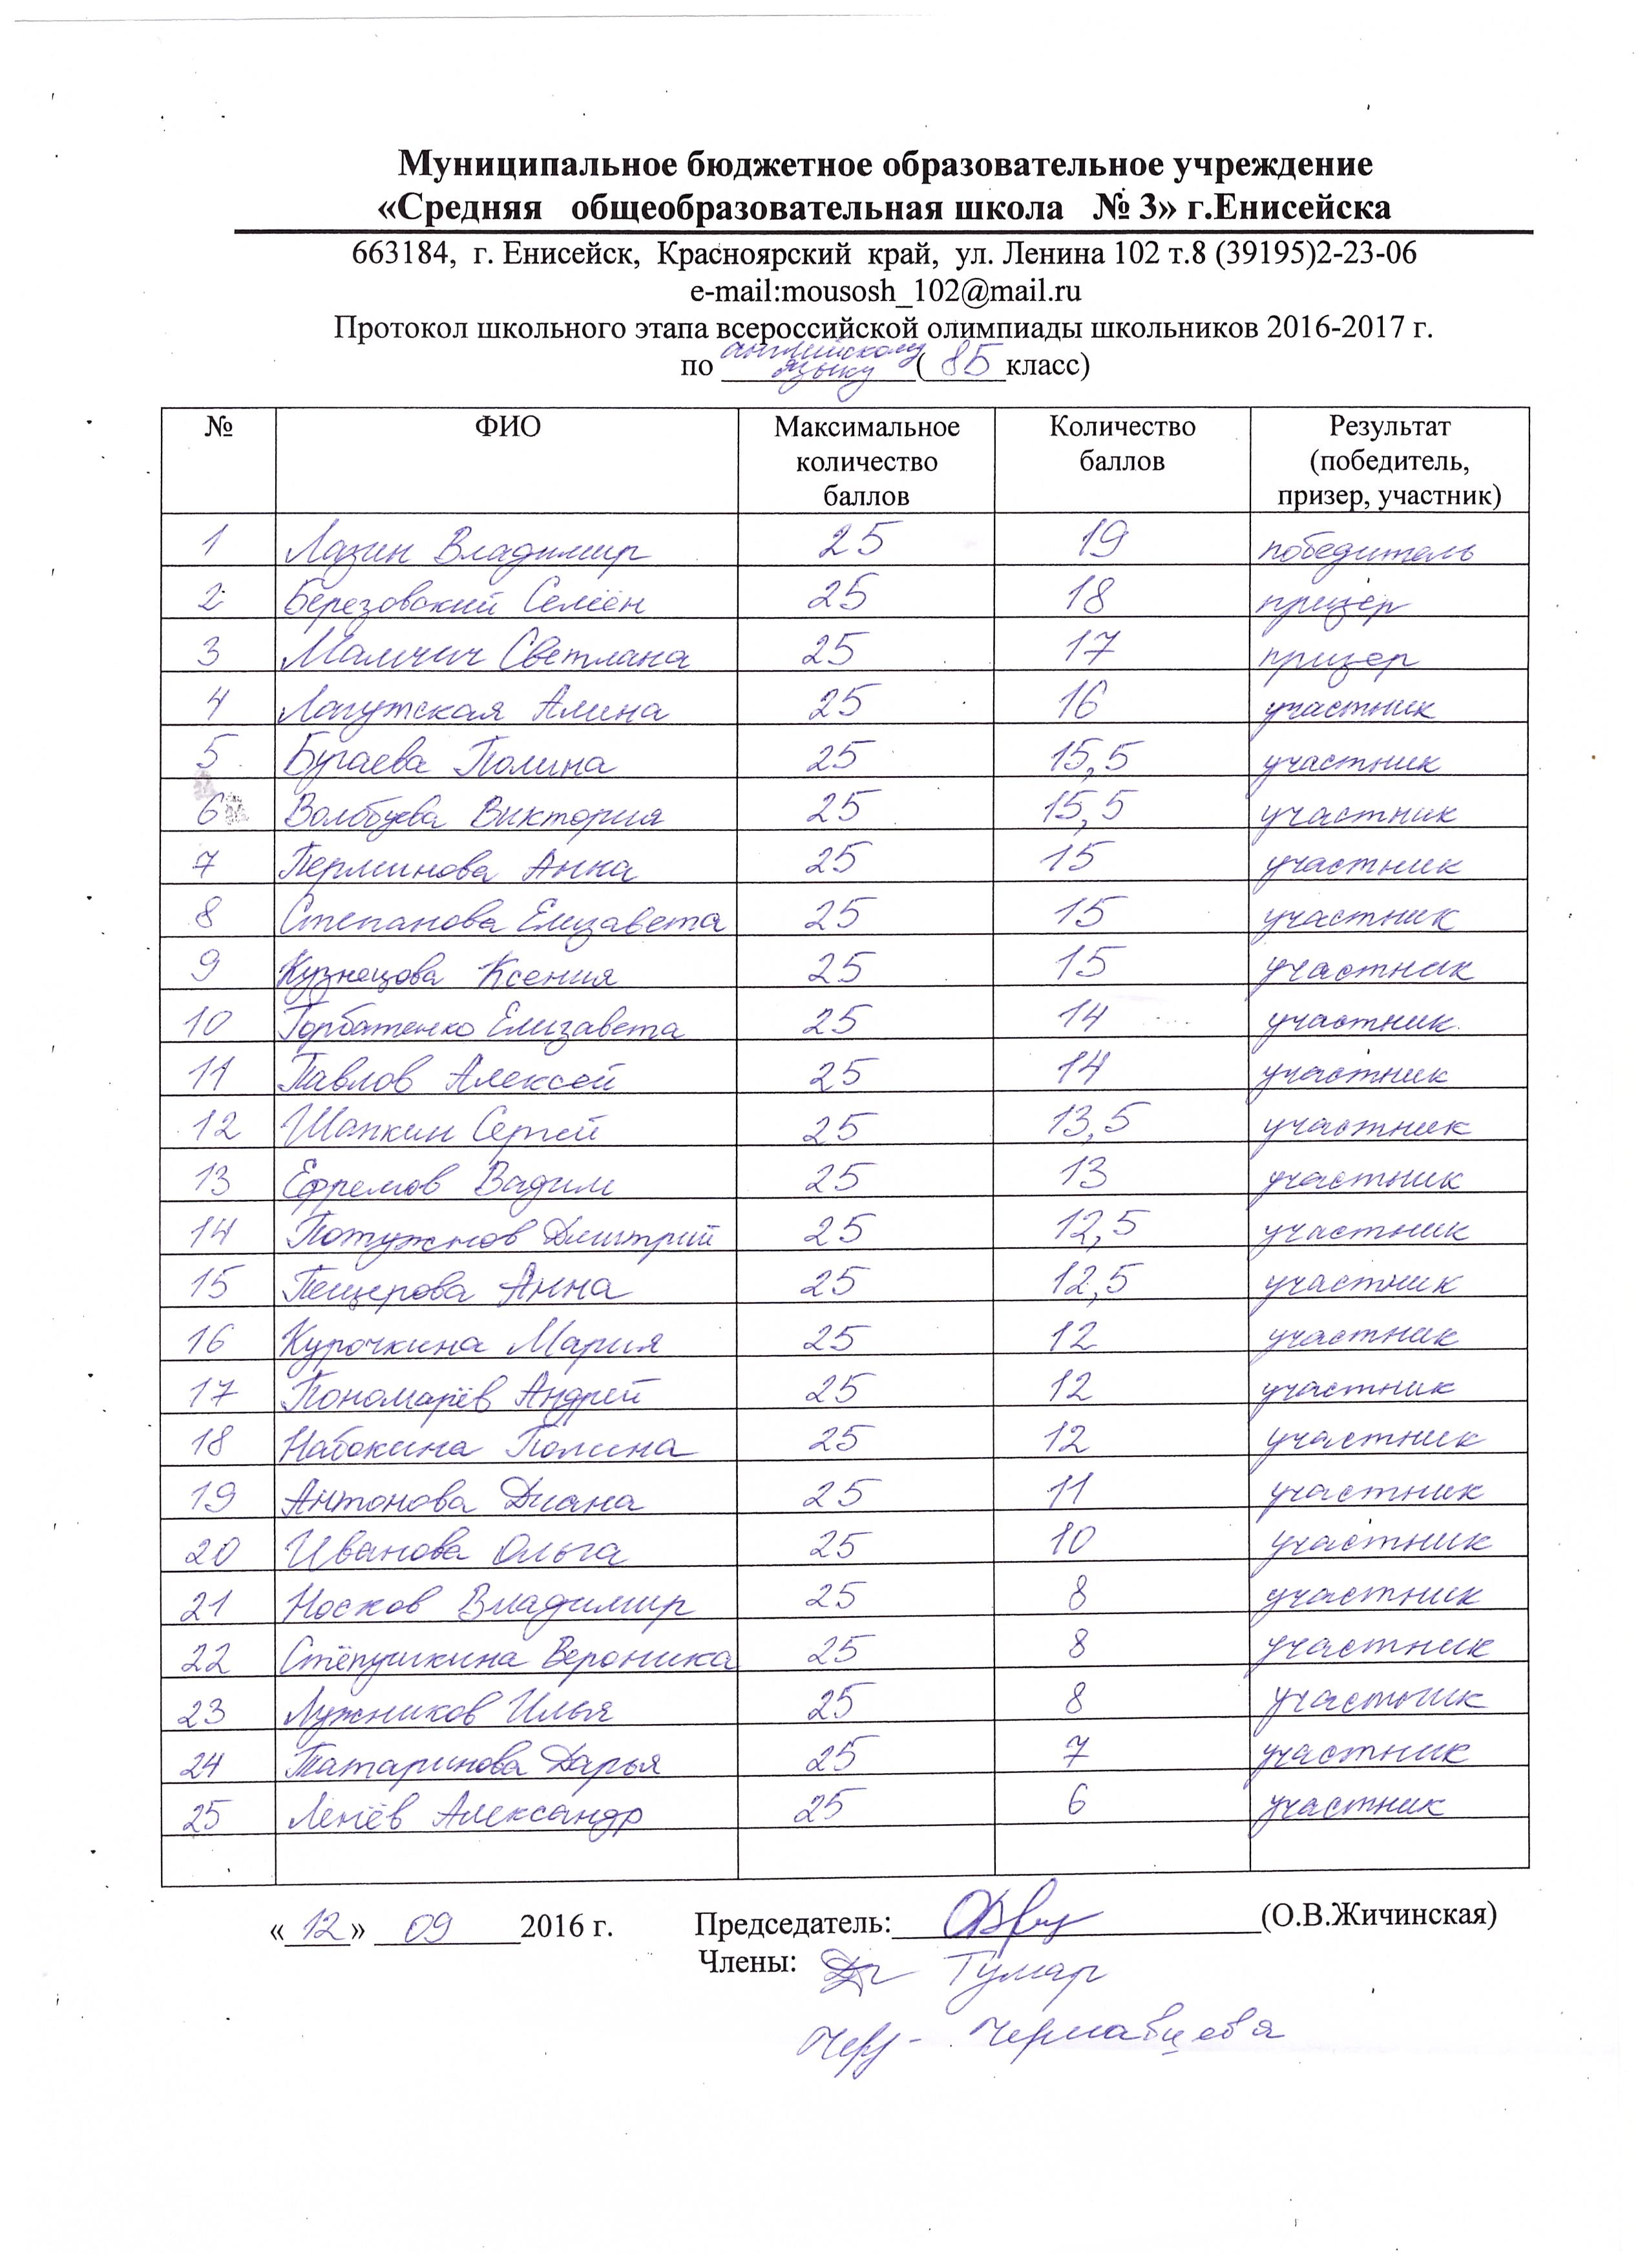 Муниципальное бюджетное образовательное учреждение
«Средняя общеобразовательная школа № 3» г.Енисейска
663184, г. Енисейск, Красноярский край, ул. Ленина 102 т.8 (39195)2-23-06
e-mail:mousosh_102@mail.ru
Протокол школьного этапа всероссийской олимпиады школьников 2016-2017 г.
по английскому языку (8Б класс)
№ ФИО Максимальное количество баллов Количество баллов Результат (победитель, призер, участник)
1 Лазин Владимир 25 19 победитель
2 Березовский Семён 25 18 призёр
3 Мамчич Светлана 25 17 призер
4 Лагутская Алина 25 16 участник
5 Бугаева Полина 25 15,5 участник
6 Волбуева Виктория 25 15,5 участник
7 Перминова Анна 25 15 участник
8 Степанова Елизавета 25 15 участник
9 Кузнецова Ксения 25 15 участник
10 Горбатенко Елизавета 25 14 участник
11 Павлов Алексей 25 14 участник
12 Шапкин Сергей 25 13,5 участник
13 Ефремов Вадим 25 13 участник
14 Потужнов Дмитрий 25 12,5 участник
15 Пещерова Анна 25 12,5 участник
16 Курочкина Мария 25 12 участник
17 Пономарёв Андрей 25 12 участник
18 Набокина Полина 25 12 участник
19 Антонова Диана 25 11 участник
20 Иванова Ольга 25 10 участник
21 Носков Владимир 25 8 участник
22 Стёпушкина Вероника 25 8 участник
23 Лужников Илья 25 8 участник
24 Татаринова Дарья 25 7 участник
25 Александр 25 6 участник
«12» 09 2016 г. Председатель: (О.В.Жичинская)
Члены: Тумар
Чернавцева